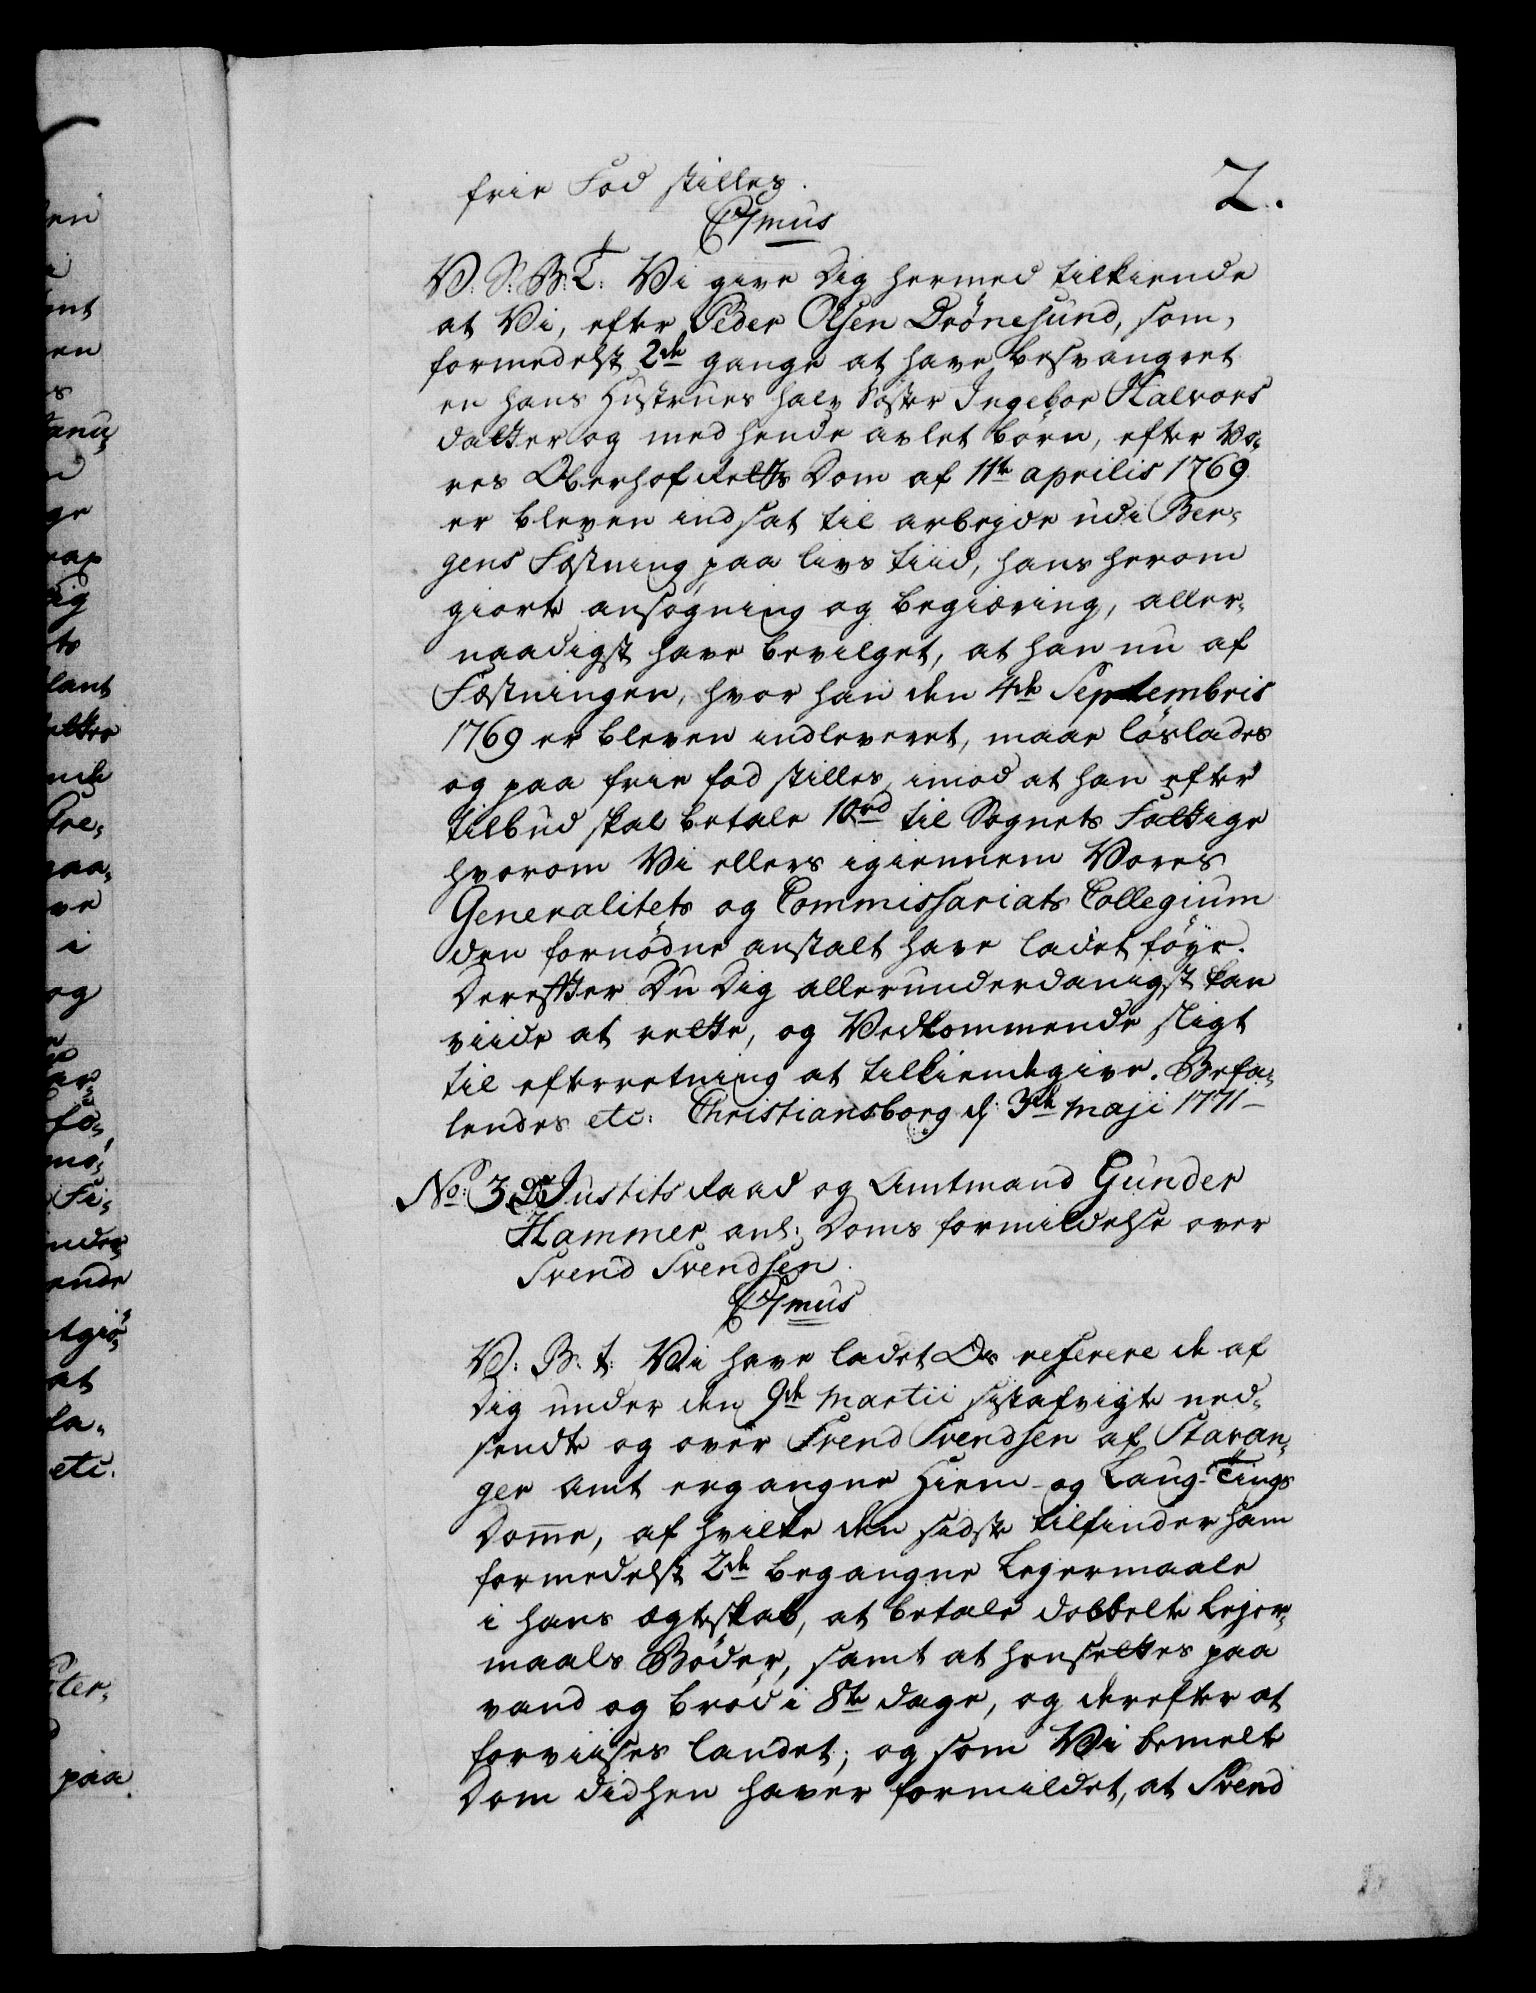 2.
frie Fod stilles.
C7mus
V. S. B. T. Vi give Dig hermed tilkiende
at Vi, efter Peder Olsen Drönesund, som,
formedelst 2de gange at have besvangret
en hans Hustrues halv Söster Ingebor Halvors
datter og med hende avlet börn, efter Vo-
res Oberhof Retts Dom af 11te aprilis 1769
er bleven indsat til arbejde udi Ber-
gens Fæstning paa livs tiid, hans herom
giorte ansögning og begiæring, aller-
naadigst have bevilget, at han nu af
Fæstningen, hvor han den 4de Septembris
1769 er bleven indleveret, maae löslades
og paa frie fod stilles, imod at han efter
tilbud skal betale 10rd til Sognets Fattige
hvorom Vi ellers igiennem Vores
Generalitets og Commissariats Collegium
den fornödne anstalt have ladet föye.
Derefter Du Dig allerunderdanigst kan
viide at rette, og Vedkommende sligt
til efterretning at tilkiendegive. Befa-
lendes etc: Christiansborg d. 3de Maji 1771
No: 3. Justits Raad og Amtmand Gunder
Hammer anl: Doms formildelse over
Svend Svendsen.
C7mus
V. B. t: Vi have ladet Os referere de af
Dig under den 9de Martii sistafvigte ned-
sendte og over Svend Svendsen af Stavan-
ger Amt ergangne Hiem- og Laug-Tings
Domme, af hvilke den sidste tilfinder ham
formedelst 2de begangne Legermaale
i hans ægteskab, at betale dobbelte Lejer-
maals Böder, samt at hensettes paa
vand og bröd i 8te dage, og derefter at
forviises landet; og som Vi bemelte
Dom didhen haver formildet, at Svend